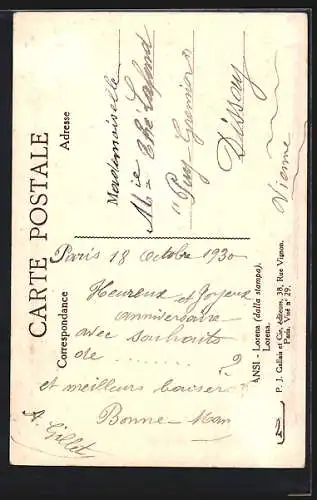 CARTE POSTALE
Correspondance
Adresse
Paris 18 octobre 1930
Heureux et Joyeux
anniversaire
avec souhaits
de ......... ?
et meilleurs baisers
Bonne-Man
A. Gillet
Mademoiselle
M
"Puy Garnier"
Dissay
Vienne
ANSI - Lorena (dalla stampa).
Lorena.
P. J. Gallais et Cie, éditeurs, 38, Rue Vignon,
Paris. Visé n° 29.